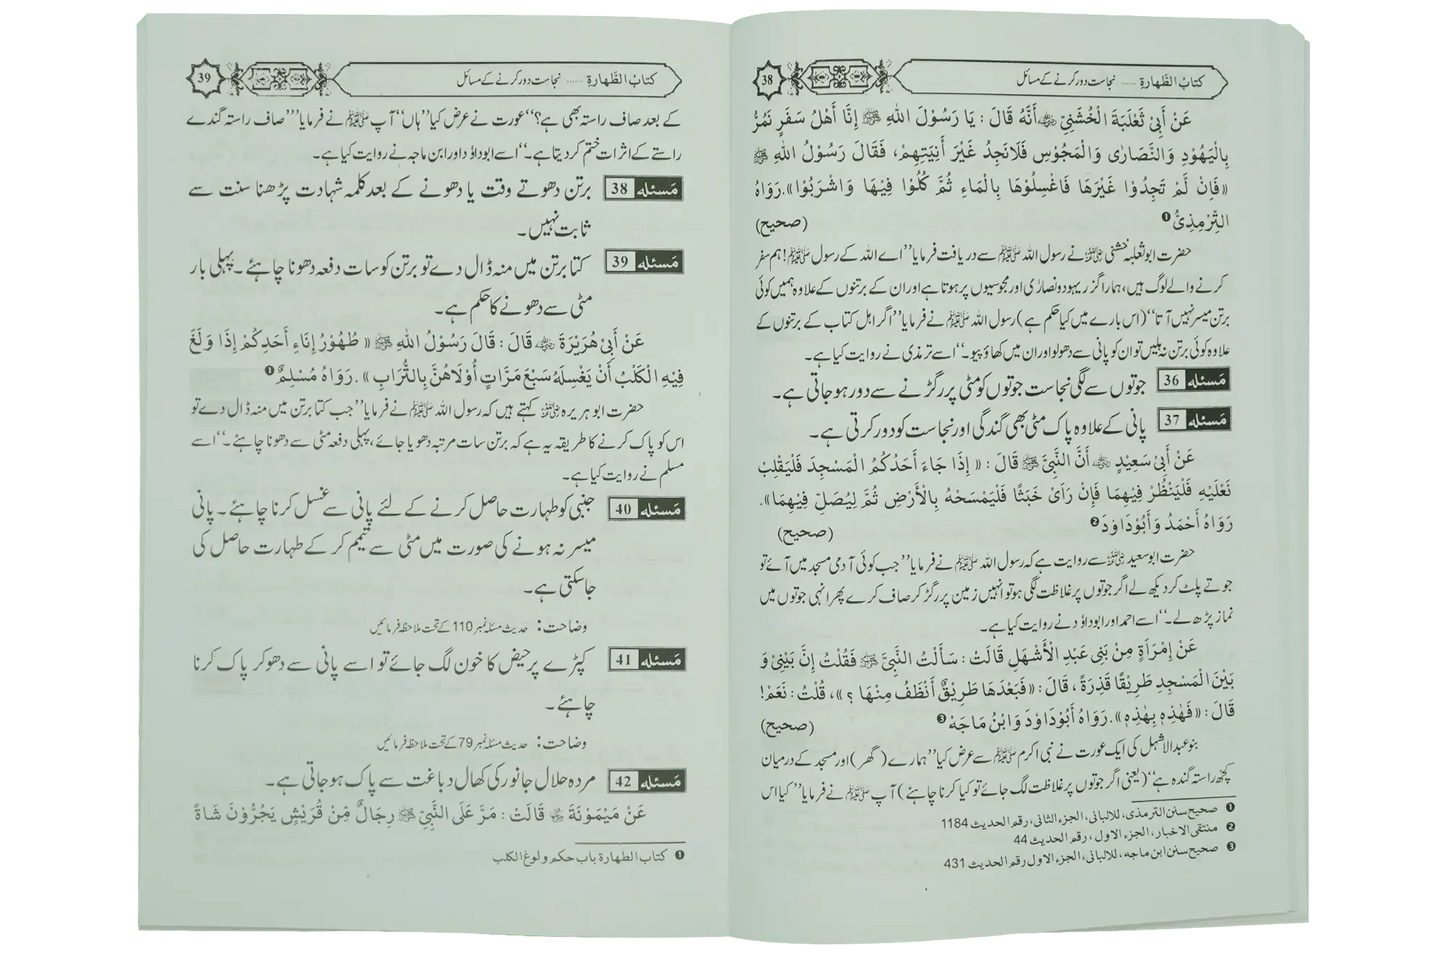 كتابُ الطّهارةِ ...... نجاست دور کرنے کے مسائل
38
عَنْ أَبِىْ ثَعْلَبَةَ الْخُشَنِىِّ ؓ أَنَّهُ قَالَ : يَا رَسُوْلَ اللهِ ﷺ إِنَّا أَهْلُ سَفَرٍ نَمُرُّ
بِالْيَهُوْدِ وَالنَّصَارٰى وَالْمَجُوْسِ فَلاَنَجِدُ غَيْرَ آنِيَتِهِمْ، فَقَالَ رَسُوْلُ اللهِ ﷺ
«فَإِنْ لَمْ تَجِدُوْا غَيْرَهَا فَاغْسِلُوْهَا بِالْمَاءِ ثُمَّ كُلُوْا فِيْهَا وَاشْرَبُوْا».رَوَاهُ
التِّرْمِذِىُّ ❶ (صحيح)
حضرت ابوثعلبہ خشنی ؓ نے رسول اللہ ﷺ سے دریافت فرمایا’’اے اللہ کے رسول ﷺ! ہم سفر
کرنے والے لوگ ہیں، ہمارا گزر یہود و نصارٰی اور مجوسیوں پر ہوتا ہے اور ان کے برتنوں کے علاوہ ہمیں کوئی
برتن میسر نہیں آتا‘‘(اس بارے میں کیا حکم ہے) رسول اللہ ﷺ نے فرمایا’’اگر اہل کتاب کے برتنوں کے
علاوہ کوئی برتن نہ ملیں تو ان کو پانی سے دھولو اور ان میں کھاؤ پیو۔‘‘اسے ترمذی نے روایت کیا ہے۔
مَسئلہ 36 جوتوں سے لگی نجاست جوتوں کو مٹی پر رگڑنے سے دور ہو جاتی ہے۔
مَسئلہ 37 پانی کے علاوہ پاک مٹی بھی گندگی اور نجاست کو دور کرتی ہے۔
عَنْ أَبِىْ سَعِيْدٍ ؓ أَنَّ النَّبِىَّ ﷺ قَالَ : « إِذَا جَاءَ أَحَدُكُمُ الْمَسْجِدَ فَلْيَقْلِبْ
نَعْلَيْهِ فَلْيَنْظُرْ فِيْهِمَا فَإِنْ رَأَىْ خَبَثًا فَلْيَمْسَحْهُ بِالْأَرْضِ ثُمَّ لِيُصَلِّ فِيْهِمَا».
رَوَاهُ أَحْمَدُ وَأَبُوْدَاوٗدَ ❷ (صحيح)
حضرت ابوسعید ؓ سے روایت ہے کہ رسول اللہ ﷺ نے فرمایا’’جب کوئی آدمی مسجد میں آئے تو
جوتے پلٹ کر دیکھ لے اگر جوتوں پر غلاظت لگی ہو تو انہیں زمین پر رگڑ کر صاف کرے پھر انہی جوتوں میں
نماز پڑھ لے۔‘‘اسے احمد اور ابوداؤد نے روایت کیا ہے۔
عَنْ إِمْرَأَةٍ مِنْ بَنِى عَبْدِ الْأَشْهَلِ قَالَتْ : سَأَلْتُ النَّبِىَّ ﷺ فَقُلْتُ إِنَّ بَيْنِىْ وَ
بَيْنَ الْمَسْجِدِ طَرِيْقًا قَذِرَةً ، قَالَ : «فَبَعْدَهَا طَرِيْقٌ أَنْظَفُ مِنْهَا ؟ »، قُلْتُ : نَعَمْ!
قَالَ : «فَهٰذِهٖ بِهٰذِهٖ».رَوَاهُ أَبُوْدَاوٗدَ وَابْنُ مَاجَهْ ❸ (صحيح)
بنو عبدالاشہل کی ایک عورت نے نبی اکرم ﷺ سے عرض کیا’’ہمارے (گھر) اور مسجد کے درمیان
کچھ راستہ گندہ ہے‘‘(یعنی اگر جوتوں پر غلاظت لگ جائے تو کیا کرنا چاہئے) آپ ﷺ نے فرمایا’’کیا اس
❶ صحیح سنن الترمذی، للالبانی، الجزء الثانی، رقم الحدیث 1184
❷ منتقی الاخبار، الجزء الاول ، رقم الحدیث 44
❸ صحیح سنن ابن ماجہ، للالبانی، الجزء الاول رقم الحدیث 431
كتابُ الطّهارةِ ...... نجاست دور کرنے کے مسائل
39
کے بعد صاف راستہ بھی ہے؟‘‘عورت نے عرض کیا’’ہاں‘‘آپ ﷺ نے فرمایا’’صاف راستہ گندے
راستے کے اثرات ختم کر دیتا ہے۔‘‘اسے ابوداؤد اور ابن ماجہ نے روایت کیا ہے۔
مَسئلہ 38 برتن دھوتے وقت یا دھونے کے بعد کلمہ شہادت پڑھنا سنت سے
ثابت نہیں۔
مَسئلہ 39 کتا برتن میں منہ ڈال دے تو برتن کو سات دفعہ دھونا چاہئے۔ پہلی بار
مٹی سے دھونے کا حکم ہے۔
عَنْ أَبِىْ هُرَيْرَةَ ؓ قَالَ : قَالَ رَسُوْلُ اللهِ ﷺ « طُهُوْرُ إِنَاءِ أَحَدِكُمْ إِذَا وَلَغَ
فِيْهِ الْكَلْبُ أَنْ يَغْسِلَهُ سَبْعَ مَرَّاتٍ أُوْلَاهُنَّ بِالتُّرَابِ » .رَوَاهُ مُسْلِمٌ ❶
حضرت ابوہریرہ ؓ کہتے ہیں کہ رسول اللہ ﷺ نے فرمایا’’جب کتا برتن میں منہ ڈال دے تو
اس کو پاک کرنے کا طریقہ یہ ہے کہ برتن سات مرتبہ دھویا جائے، پہلی دفعہ مٹی سے دھونا چاہئے۔‘‘اسے
مسلم نے روایت کیا ہے۔
مَسئلہ 40 جنبی کو طہارت حاصل کرنے کے لئے پانی سے غسل کرنا چاہئے۔ پانی
میسر نہ ہونے کی صورت میں مٹی سے تیمم کر کے طہارت حاصل کی
جا سکتی ہے۔
وضاحت : حدیث مسئلہ نمبر 110 کے تحت ملاحظہ فرمائیں
مَسئلہ 41 کپڑے پر حیض کا خون لگ جائے تو اسے پانی سے دھو کر پاک کرنا
چاہئے۔
وضاحت : حدیث مسئلہ نمبر 79 کے تحت ملاحظہ فرمائیں
مَسئلہ 42 مردہ حلال جانور کی کھال دباغت سے پاک ہو جاتی ہے۔
عَنْ مَيْمُوْنَةَ ؓ قَالَتْ : مَرَّ عَلَى النَّبِىِّ ﷺ رِجَالٌ مِّنْ قُرَيْشٍ يَجُرُّوْنَ شَاةً
❶ کتاب الطهارة باب حکم ولوغ الکلب